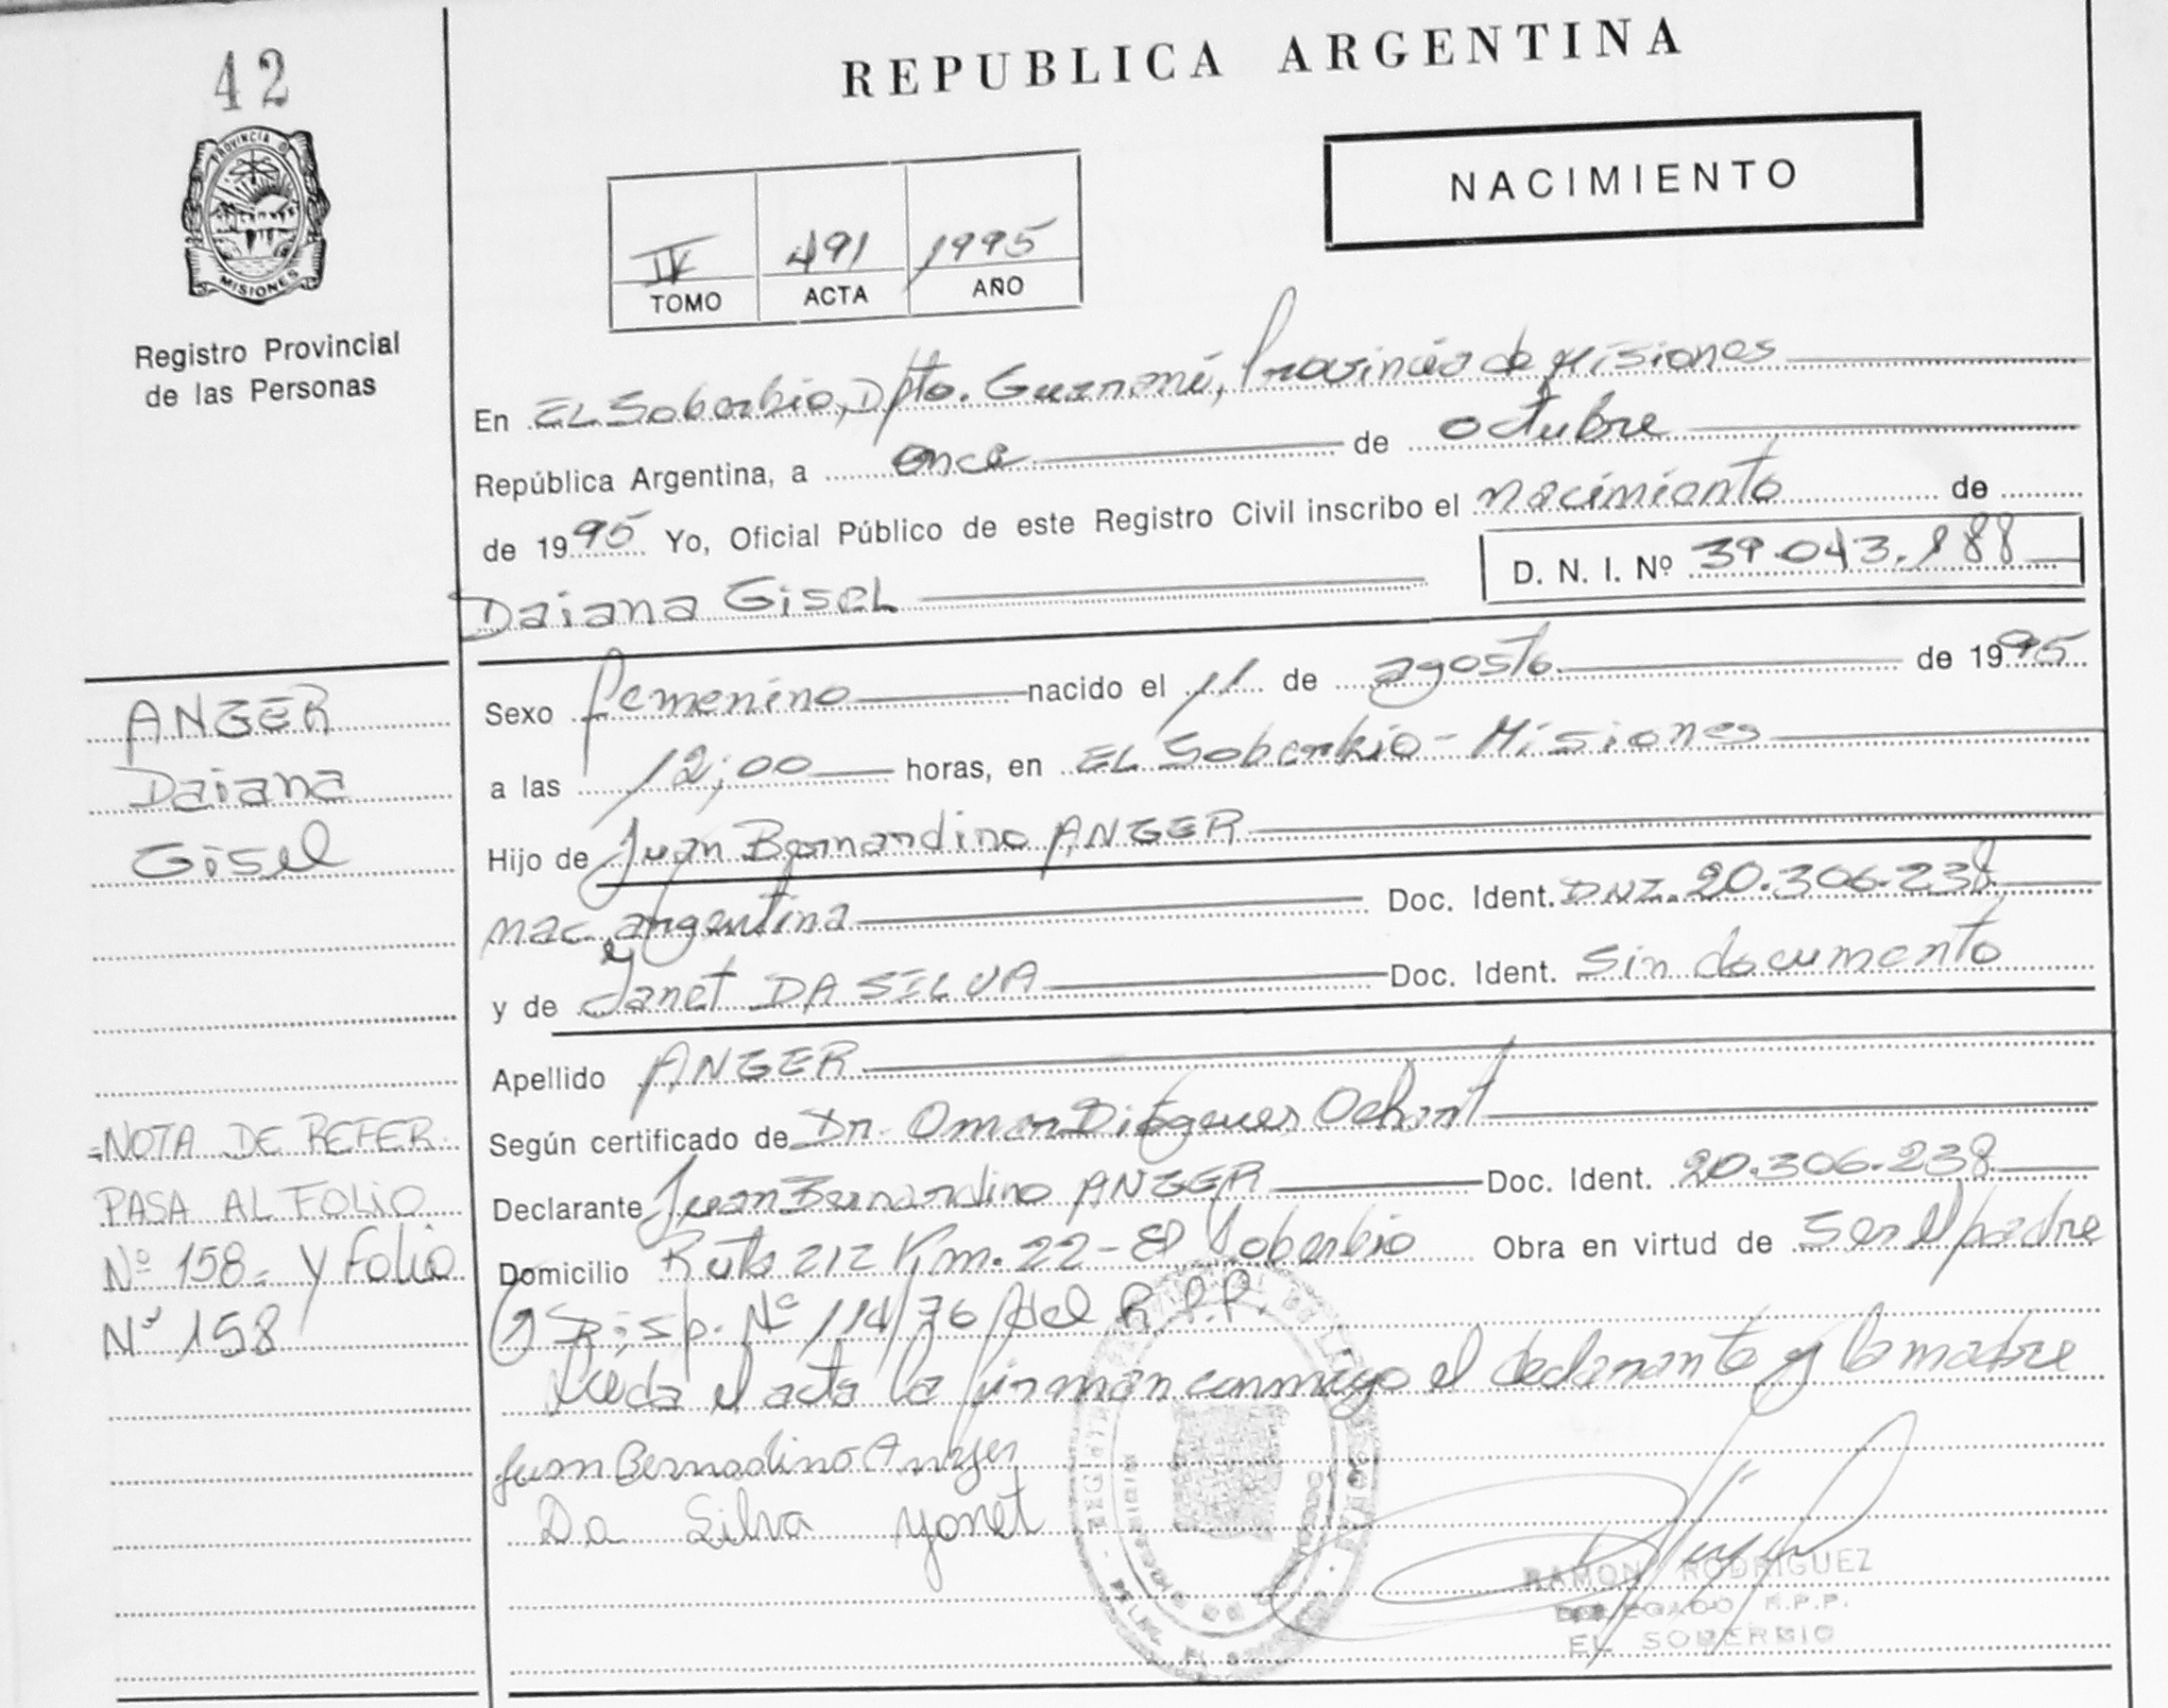 42
PROVINCIA D
MISIONES
Registro Provincial
de las Personas
REPUBLICA ARGENTINA
NACIMIENTO
IV 491 1995
TOMO ACTA AÑO
En EL Soberbio, Dpto. Guaraní, Provincia de Misiones
República Argentina, a once de octubre
de 1995 Yo, Oficial Público de este Registro Civil inscribo el nacimiento de
D. N. I. Nº 39.043.188
Daiana GiseL
Sexo femenino nacido el 11 de agosto de 1995
a las 12;00 horas, en EL Soberbio - Misiones
Hijo de Juan Bernardino ANGER
nac. argentina Doc. Ident. DNI. 20.306.238
y de Janet DA SILVA Doc. Ident. Sin documento
Apellido ANGER
Según certificado de Dr. Omar Diógenes
Declarante Juan Bernardino ANGER Doc. Ident. 20.306.238
Domicilio Ruta 212 Km. 22 - El Soberbio Obra en virtud de Ser el padre
Disp. Nº 114/76 del R.P.P.
Leída el acta la firman conmigo el declarante y la madre
Juan Bernadino Anger
Da Silva Yanet
RAMON RODRIGUEZ
DELEGADO R.P.P.
EL SOBERBIO
ANGER
Daiana
Gisel
=NOTA DE REFER.
PASA AL FOLIO
Nº 158.- Y folio
Nº 158